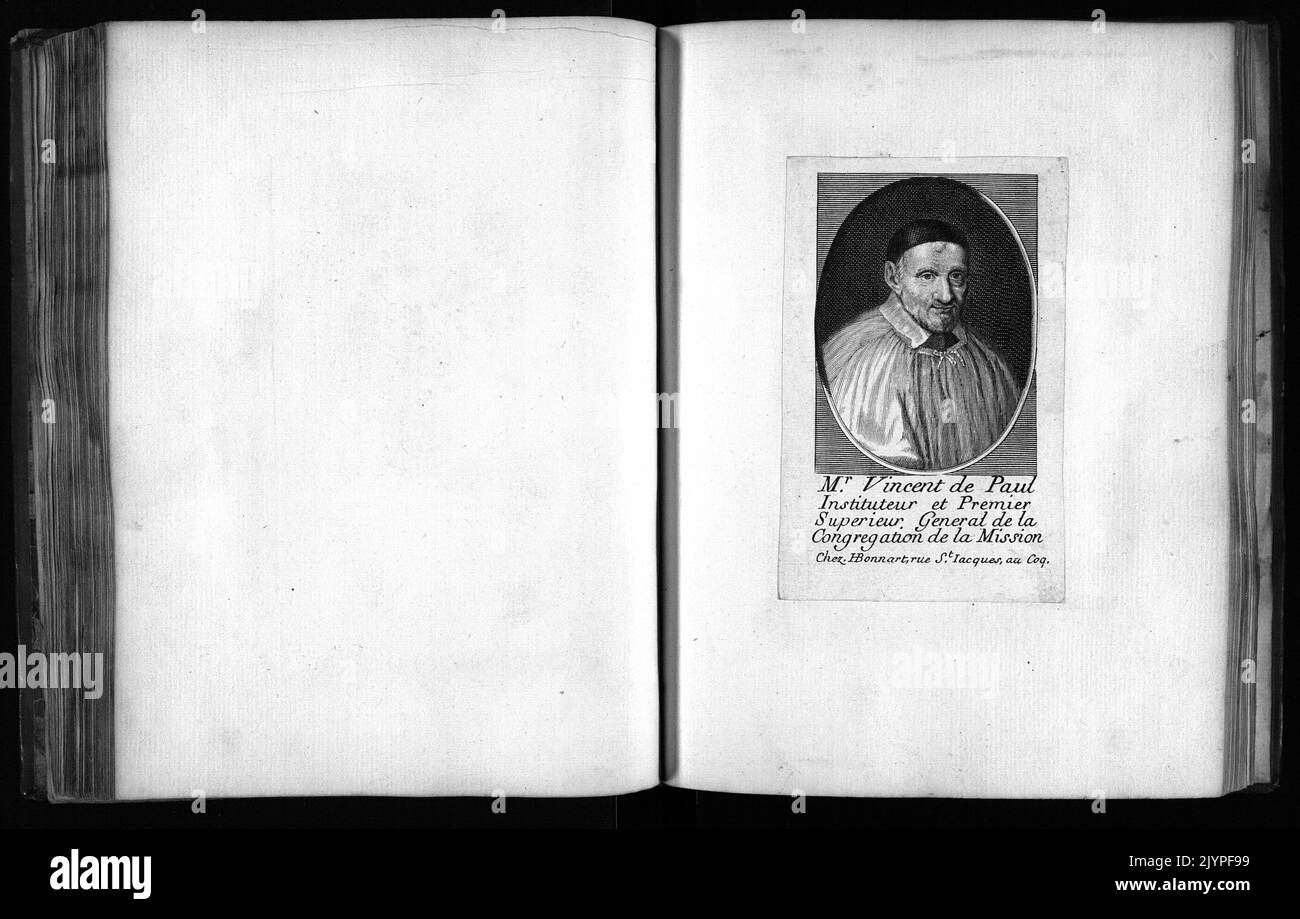 Mr. Vincent de Paul
Instituteur et Premier
Superieur General de la
Congregation de la Mission
Chez. HBonnart, rue St. Iacques, au Coq.
alamy
alamy
alamy
alamy
alamy
alamy
Image ID: 2JYPF99
www.alamy.com